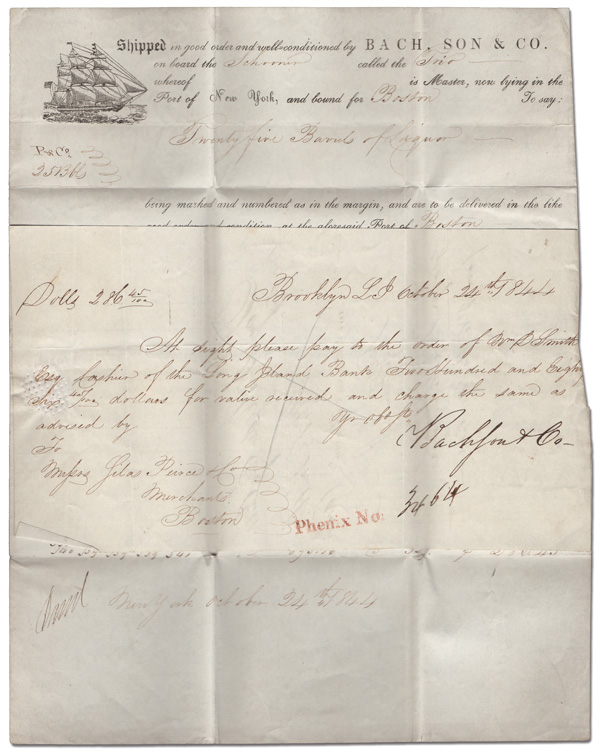 Shipped in good order and well-conditioned by BACH, SON & CO.
on board the Schooner called the
whereof is Master, now lying in the
Port of New York, and bound for Boston To say:
Twenty five Barrels of Liquor
B & Co
being marked and numbered as in the margin, and are to be delivered in the like
good order and condition, at the aforesaid Port of Boston
Dolls 286 45/100 Brooklyn L I October 24th 1844
At sight please pay to the order of Wm D Smith
Esq Cashier of the Long Island Bank Two Hundred and Eighty
Six 45/100 dollars for value received and charge the same as
advised by Yr Obt St
To Bach Son & Co
Messrs Silas Peirce & Co
Merchants
Boston
Phenix No. 3464
New York October 24th 1844